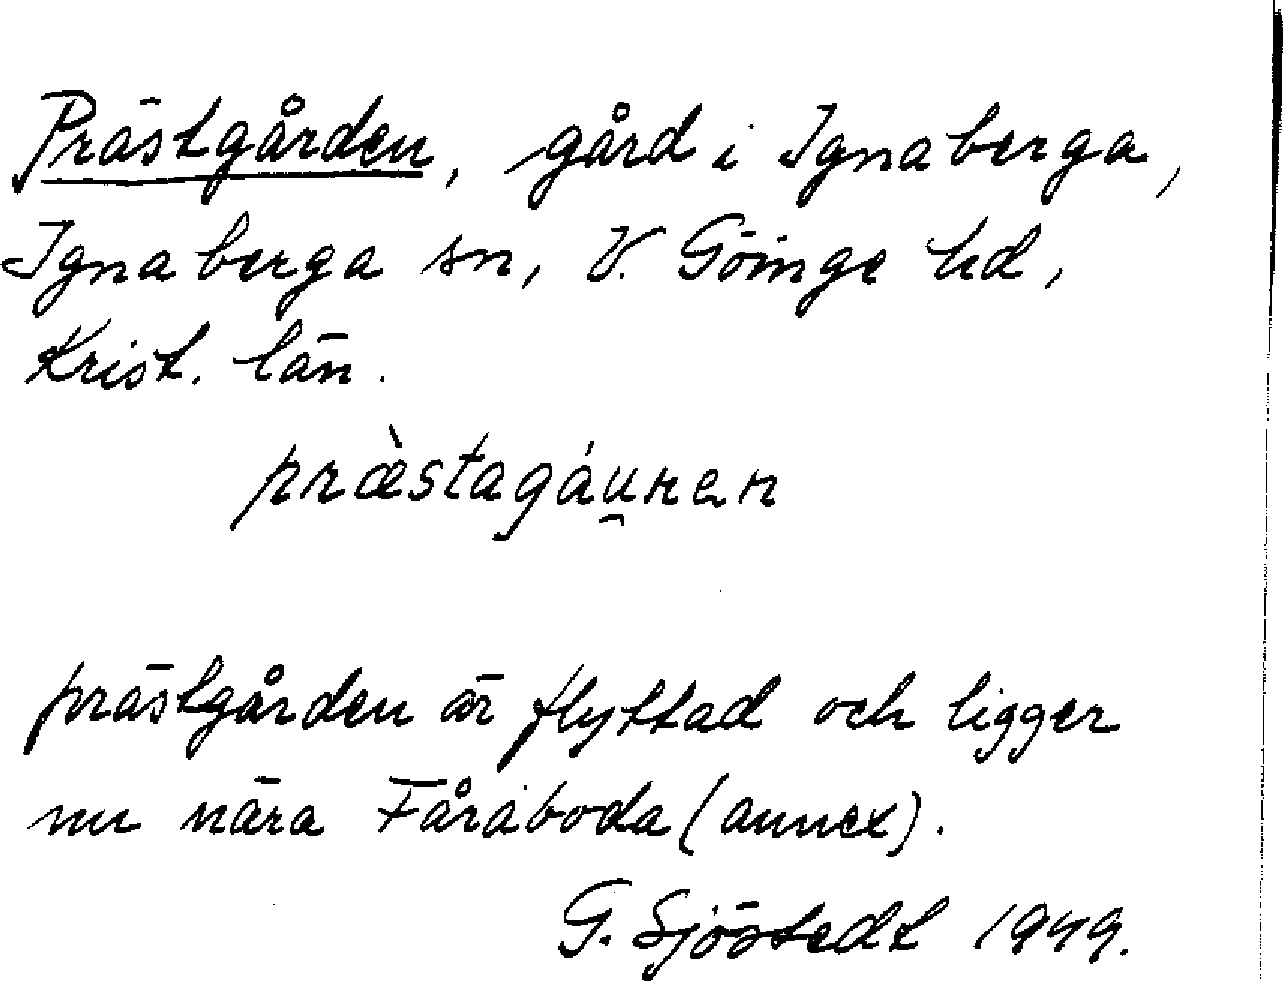 Prästgården, gård i Ignaberga,
Ignaberga sn, V. Göinge hd,
Krist. län.
præ̀stagáu̯nen
prästgården är flyttad och ligger
nu nära Fåraboda (annex).
G. Sjöstedt 1949.